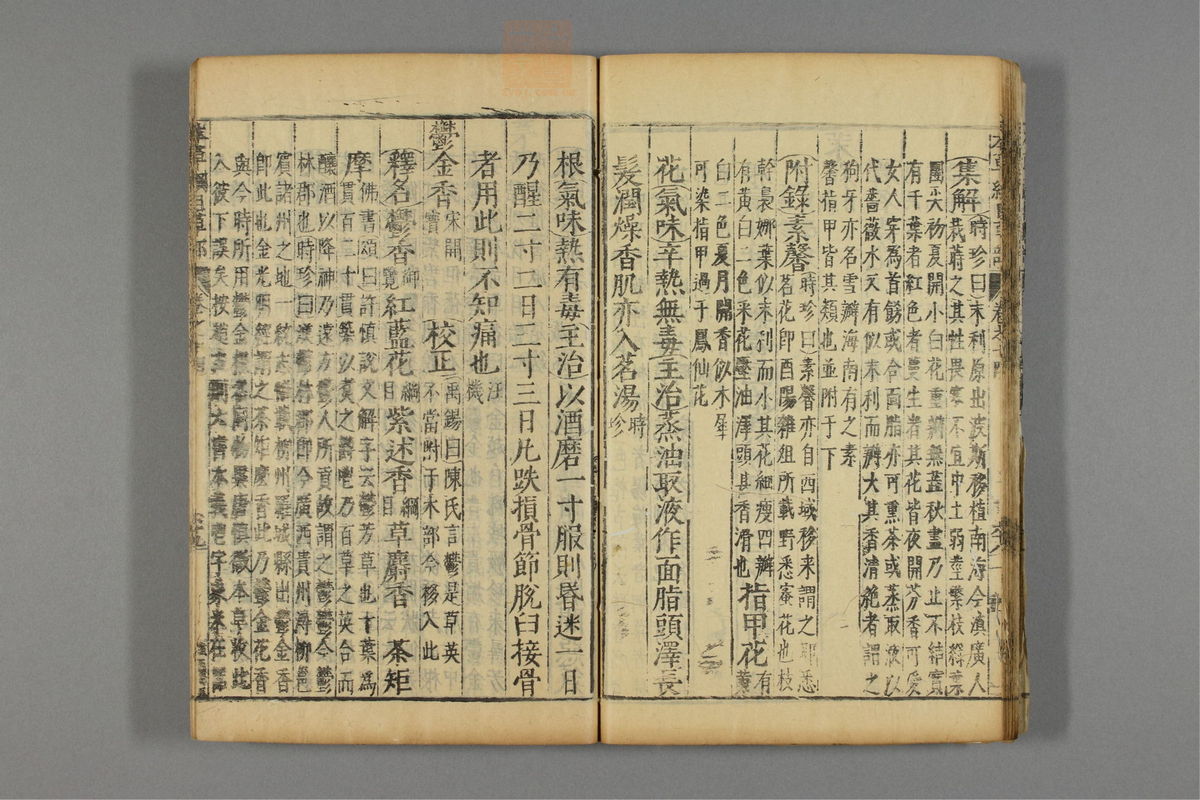 集解時珍曰末利原出波斯移植南海今滇廣人
栽蒔之其性畏寒不宜中土弱莖繁枝綠葉
團尖初夏開小白花重瓣無蕊秋盡乃止不結實
有千葉者紅色者蔓生者其花皆夜開芬香可愛
女人穿爲首飾或合面脂亦可熏茶或蒸取液以
代薔薇水又有似末利而瓣大其香清絶者謂之
狗牙亦名雪瓣海南有之素
馨指甲皆其類也並附于下
附錄素馨時珍曰素馨亦自西域移來謂之耶悉
茗花即酉陽雜俎所載野悉蜜花也枝
幹裊娜葉似末利而小其花細瘦四瓣
有黃白二色采花壓油澤頭甚香滑也指甲花有黃
白二色夏月開香似木犀
可染指甲過于鳳仙花
花氣味辛熱無毒主治蒸油取液作面脂頭澤長
髮潤燥香肌亦入茗湯時珍
根氣味熱有毒主治以酒磨一寸服則昏迷一日
乃醒二寸二日三寸三日凡跌損骨節脫臼接骨
者用此則不知痛也汪機
鬱金香宋開寶校正禹錫曰陳氏言鬱是草英不當附于木部今移入此
釋名鬱香御覽紅藍花綱目紫述香綱目草麝香 茶矩
摩佛書頌曰許慎說文解字云鬱芳草也十葉爲
貫百二十貫築以煮之鬱鬯乃百草之英合而
釀酒以降神乃遠方鬱人所貢故謂之鬱鬱今鬱
林郡也時珍曰漢鬱林郡即今廣西貴州潯柳邕
賓諸州之地一統志惟載柳州羅城縣出鬱金香
即此也金光明經謂之茶矩摩香此乃鬱金花香
與今時所用鬱金根名同物異唐慎微本草收此
入彼下誤矣按趙古則六書本義鬯字象米在